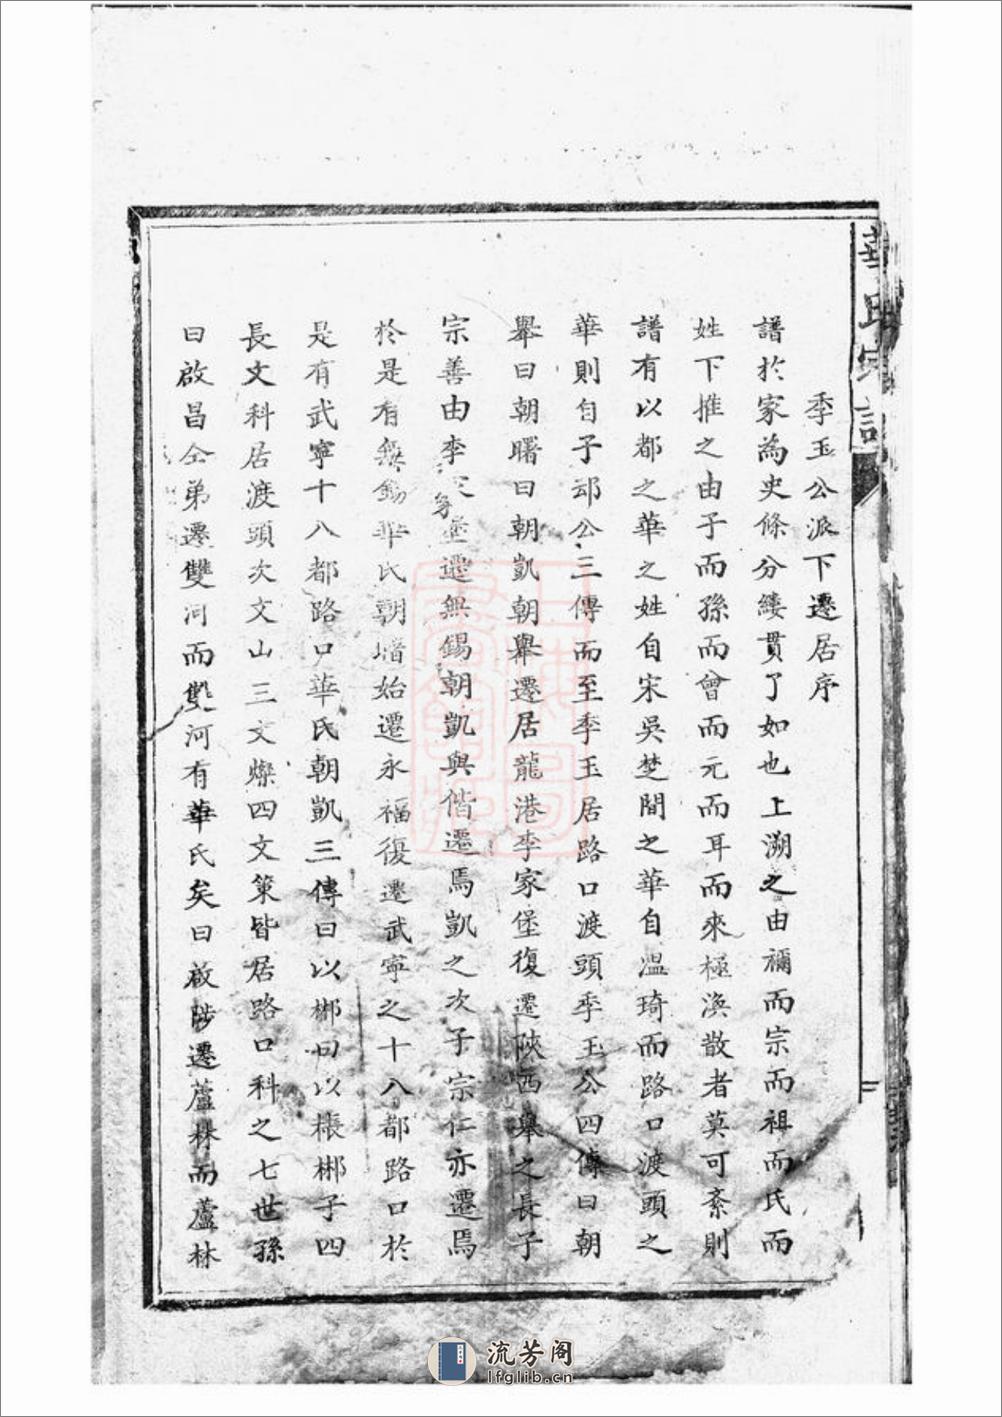 華氏宗譜
季玉公派下遷居序
譜於家為史條分縷貫了如也上溯之由禰而宗而祖而氏而
姓下推之由子而孫而曾而元而耳而來極渙散者莫可紊則
譜有以都之華之姓自宋吳楚間之華自溫琦而路口渡頭之
華則自子邧公三傳而至季玉居路口渡頭季玉公四傳曰朝
舉曰朝曙曰朝凱朝舉遷居龍港李家堡復遷陝西舉之長子
宗善由李家堡遷無錫朝凱與偕遷焉凱之次子宗仁亦遷焉
於是有無錫華氏朝增始遷永福復遷武寧之十八都路口於
是有武寧十八都路口華氏朝凱三傳曰以郴曰以棖郴子四
長文科居渡頭次文山三文燦四文策皆居路口科之七世孫
曰啟昌仝弟遷雙河而雙河有華氏矣曰啟陟遷蘆林而蘆林
流芳阁
lfglib.cn